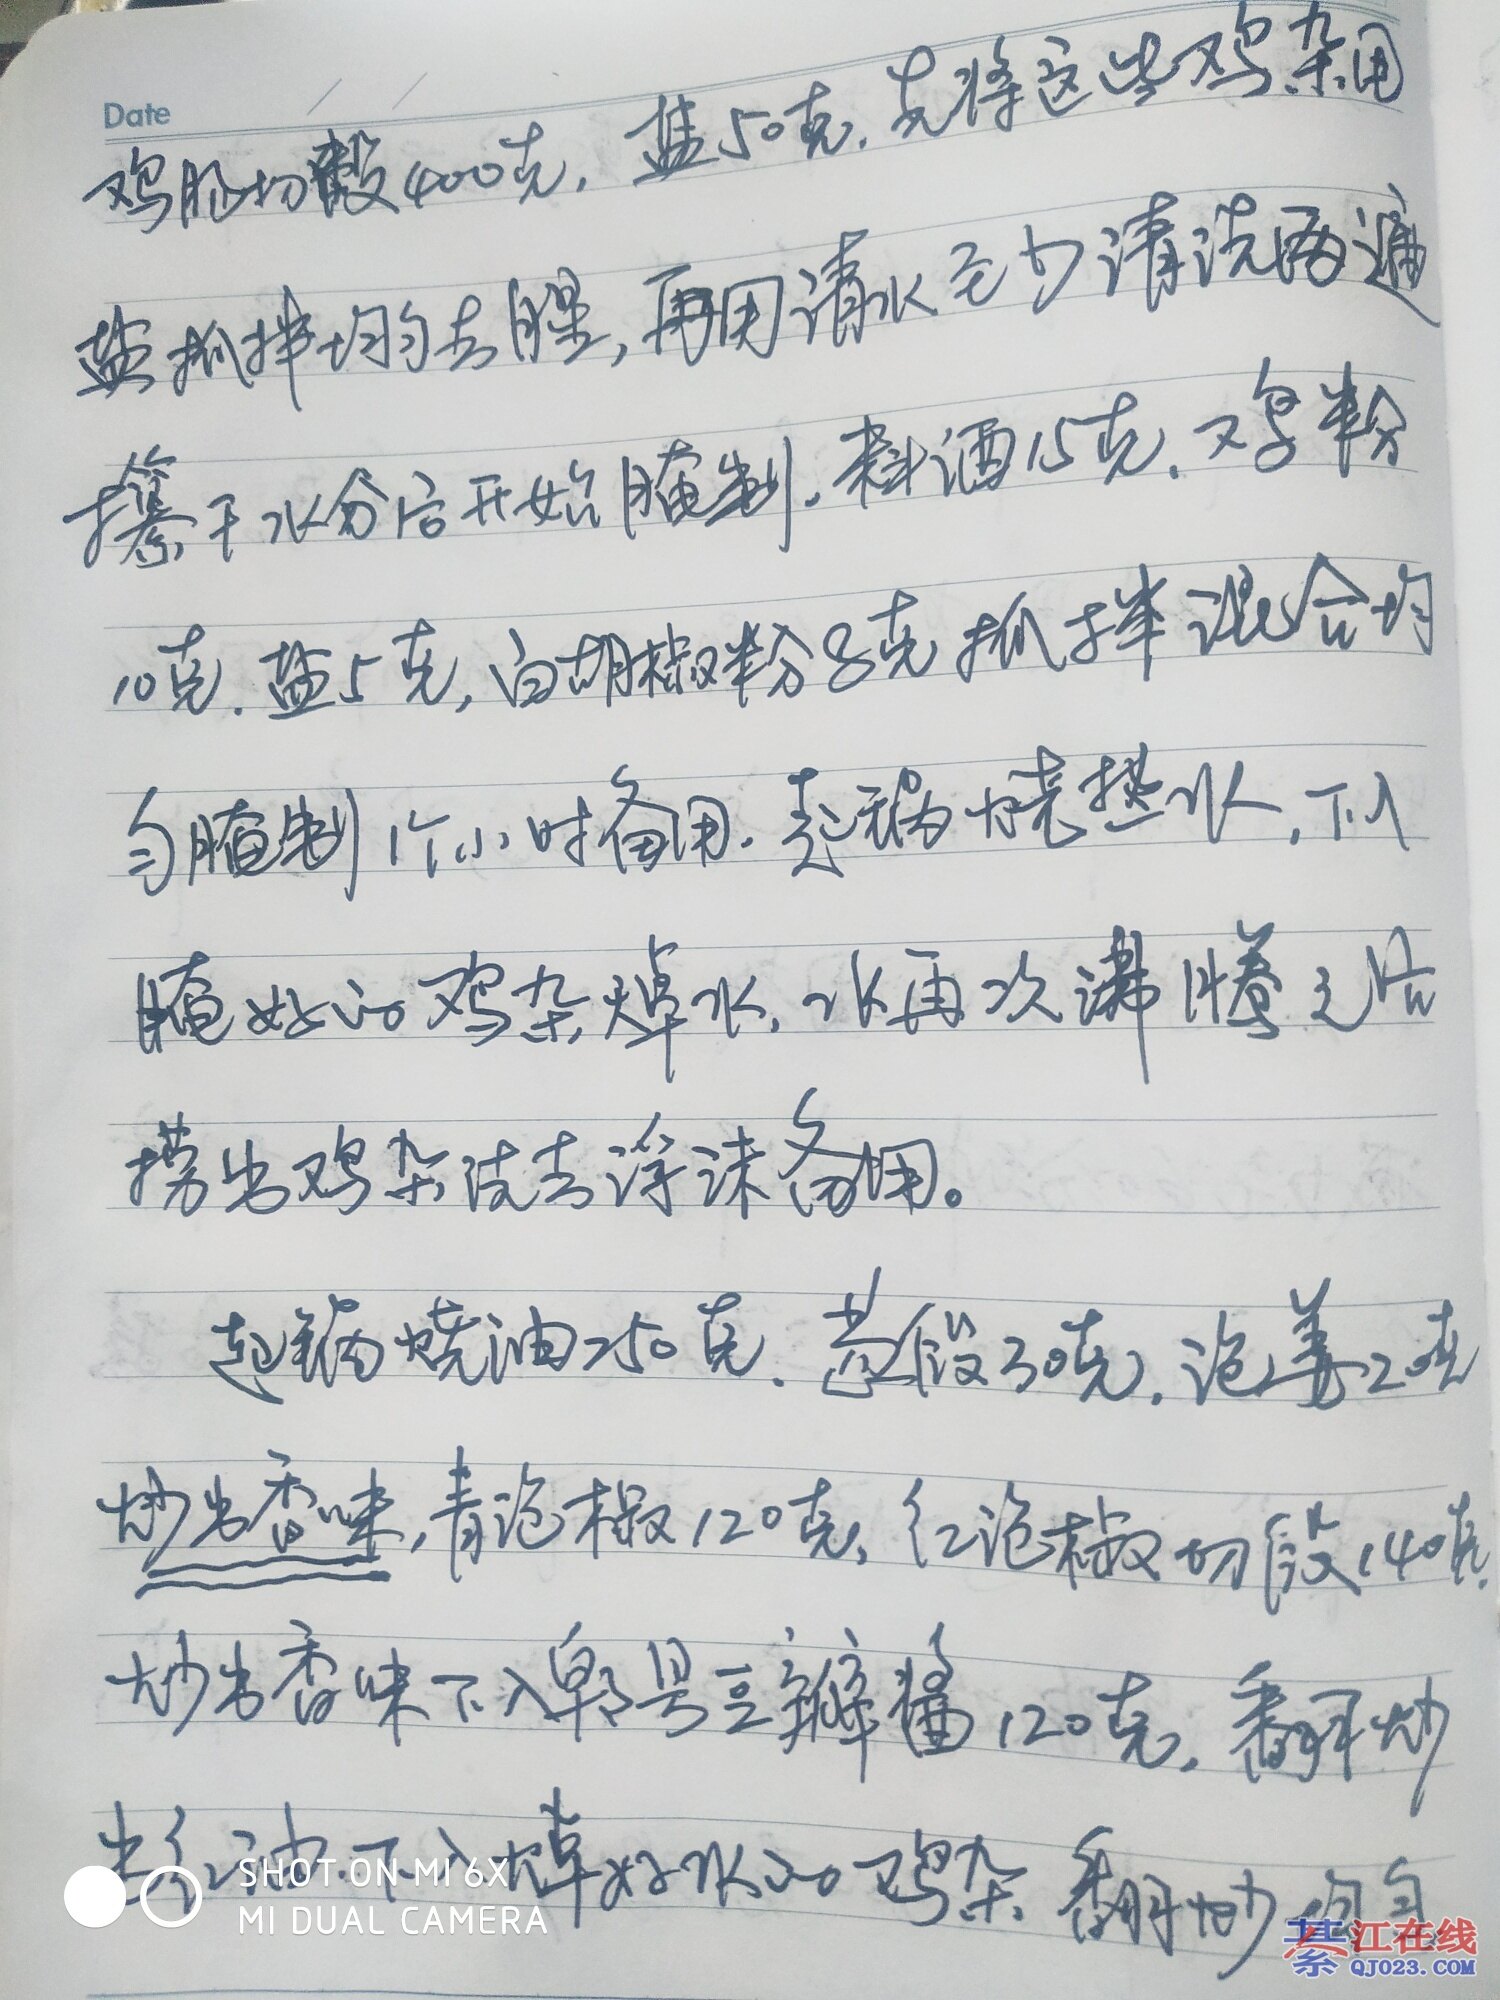 Date
鸡胗切段400克，盐50克.先将这些鸡杂用
盐抓拌均匀去腥，再用清水至少清洗两遍
攥干水分后开始腌制.料酒15克.鸡粉
10克.盐5克，白胡椒粉8克抓拌混合均
匀腌制1个小时备用.起锅烧热水，下入
腌好的鸡杂焯水，水再次沸腾之后
捞出鸡杂洗去浮沫备用。
起锅烧油250克.葱段30克，泡姜20克
炒出香味，青泡椒120克，红泡椒切段140克.
炒出香味下入郫县豆瓣酱120克，翻炒
出红油.下入焯好水的鸡杂翻炒均匀
SHOT ON MI 6X
MI DUAL CAMERA
綦江在线
QJ023.COM